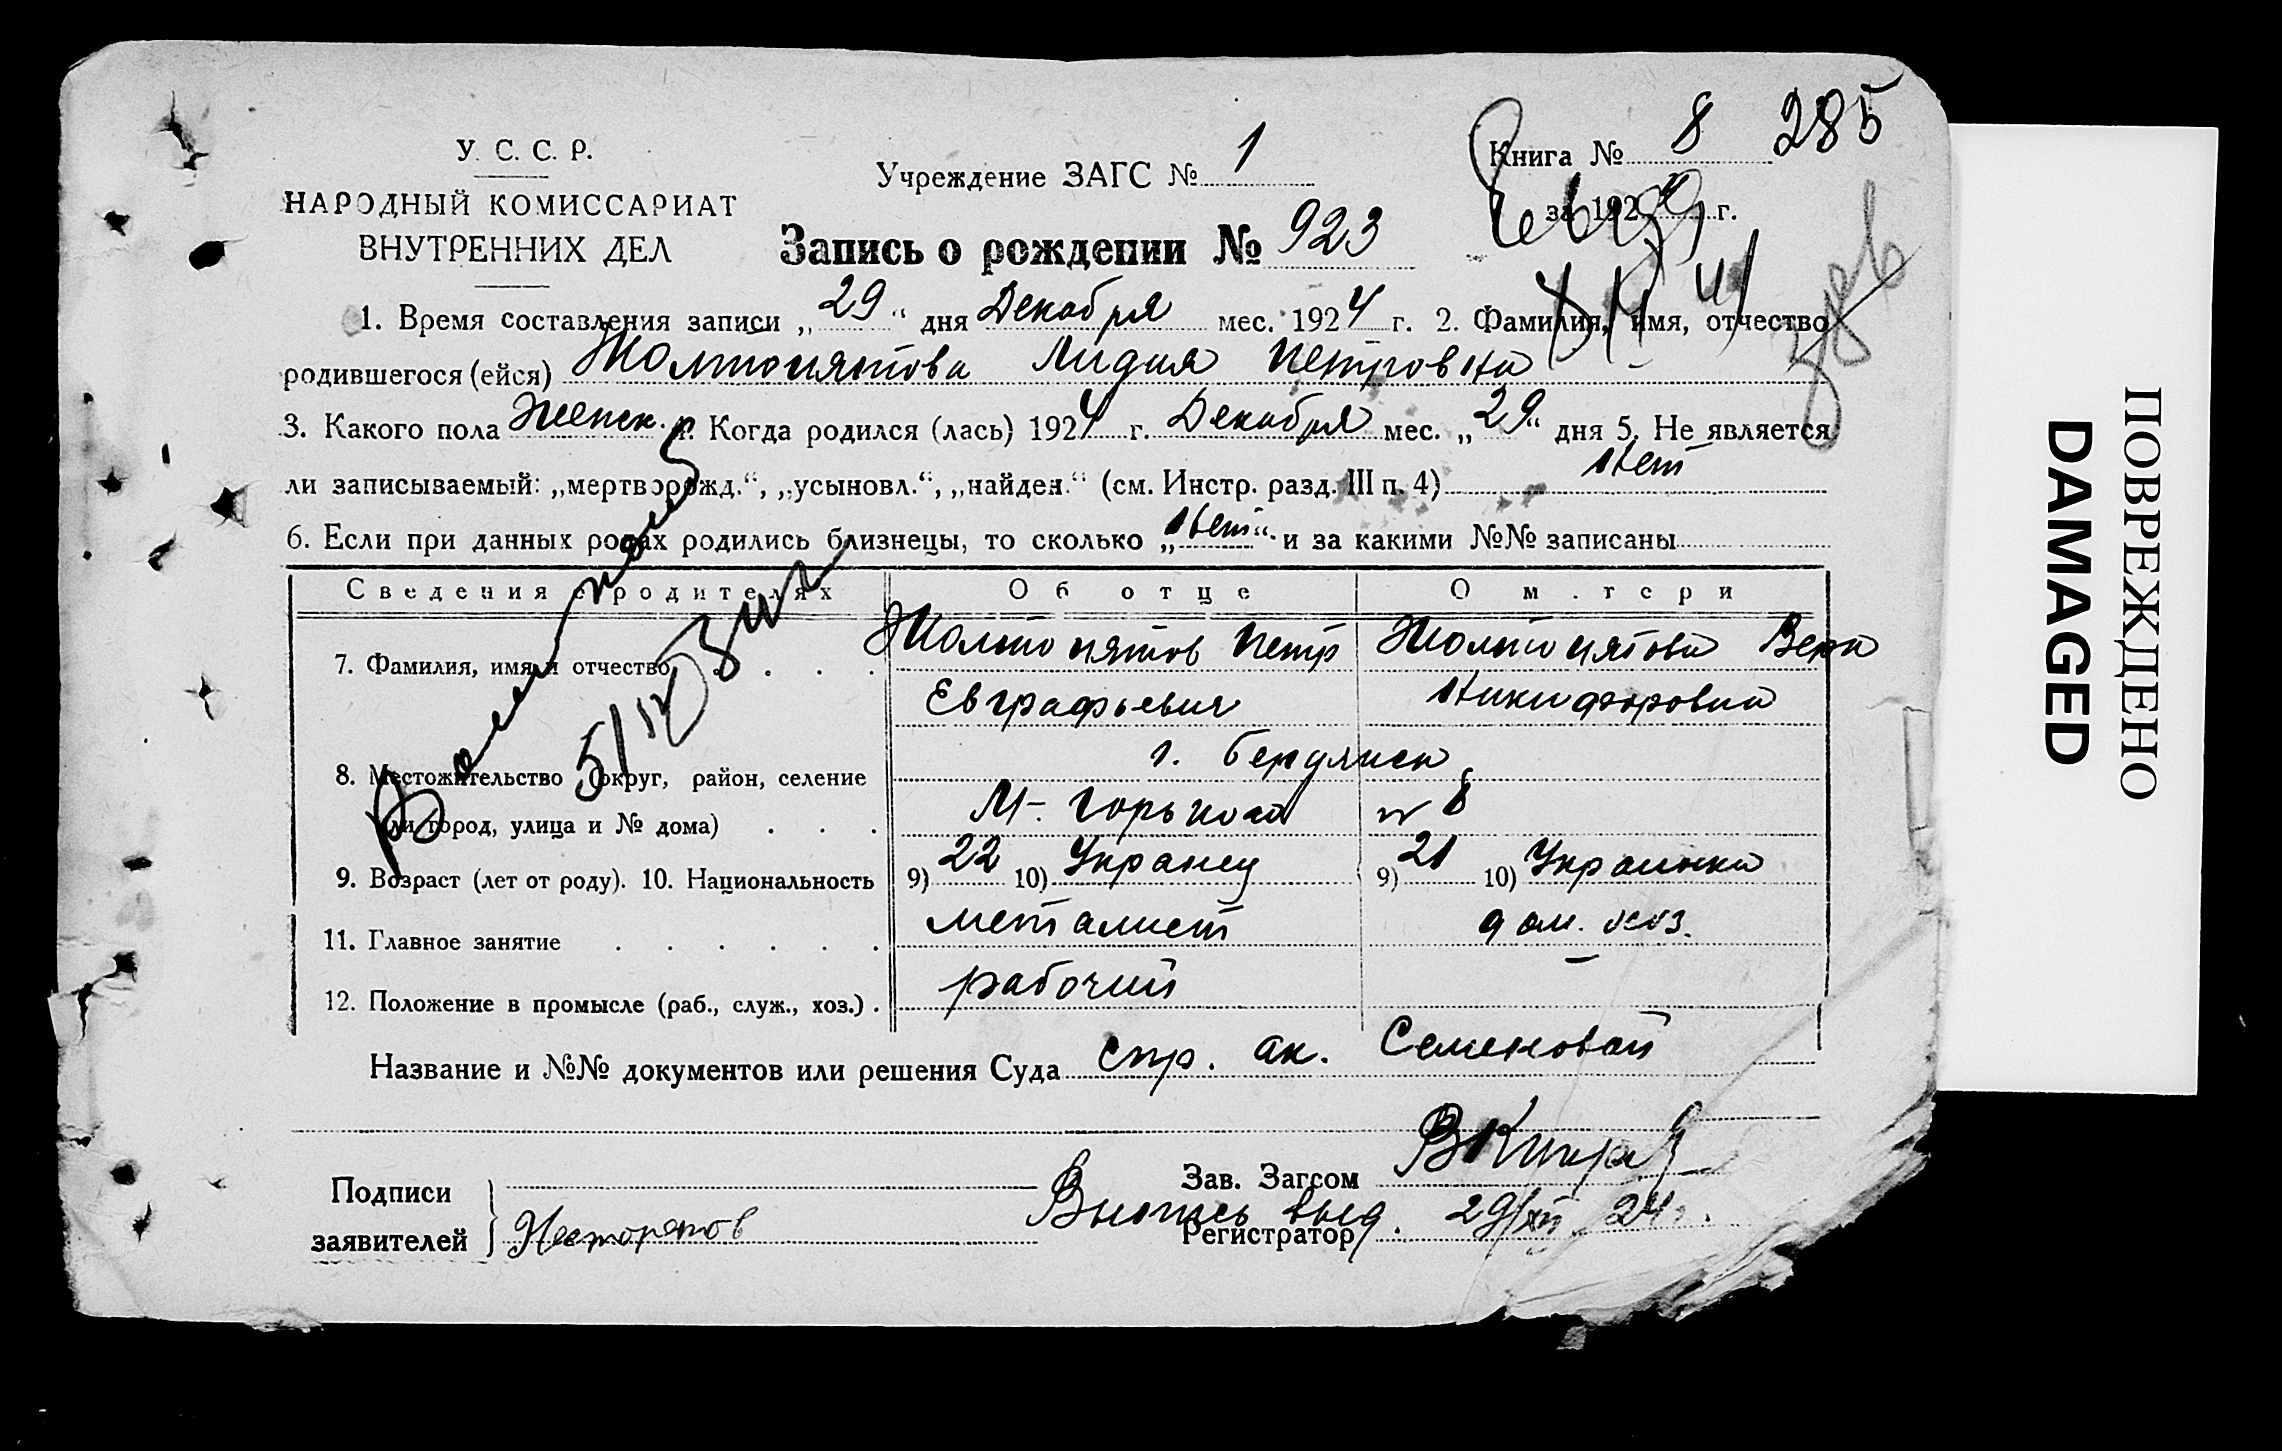 У. С. С. Р.
НАРОДНЫЙ КОМИССАРИАТ
ВНУТРЕННИХ ДЕЛ
Учреждение ЗАГС № 1
Книга № 8 285
за 1924 г.
Запись о рождении № 923
1. Время составления записи „29“ дня Декабря мес. 1924 г. 2. Фамилия, имя, отчество
родившегося (ейся) Жолтопятова Лидия Петровна
3. Какого пола Женск. 4. Когда родился (лась) 1924 г. Декабря мес. „29“ дня 5. Не является
ли записываемый: „мертворожд.“, „усыновл.“, „найден.“ (см. Инстр. разд. III п. 4) Нет
6. Если при данных родах родились близнецы, то сколько „Нет“ и за какими №№ записаны
Сведения о родителях Об отце О матери
7. Фамилия, имя и отчество Жолтопятов Петр Жолтопятова Вера
Евграфьевич Никифоровна
8. Местожительство (округ, район, селение г. Бердянск
или город, улица и № дома) М. Горького № 8
9. Возраст (лет от роду). 10. Национальность 9) 22 10) Укранец 9) 21 10) Украинка
11. Главное занятие металист дом. хоз.
12. Положение в промысле (раб., служ., хоз.) рабочий —
Название и №№ документов или решения Суда спр. ак. Семеновой
Подписи
заявителей
Зав. Загсом
Выпись выд. 29/XII 24 г.
Регистратор
ПОВРЕЖДЕНО
DAMAGED